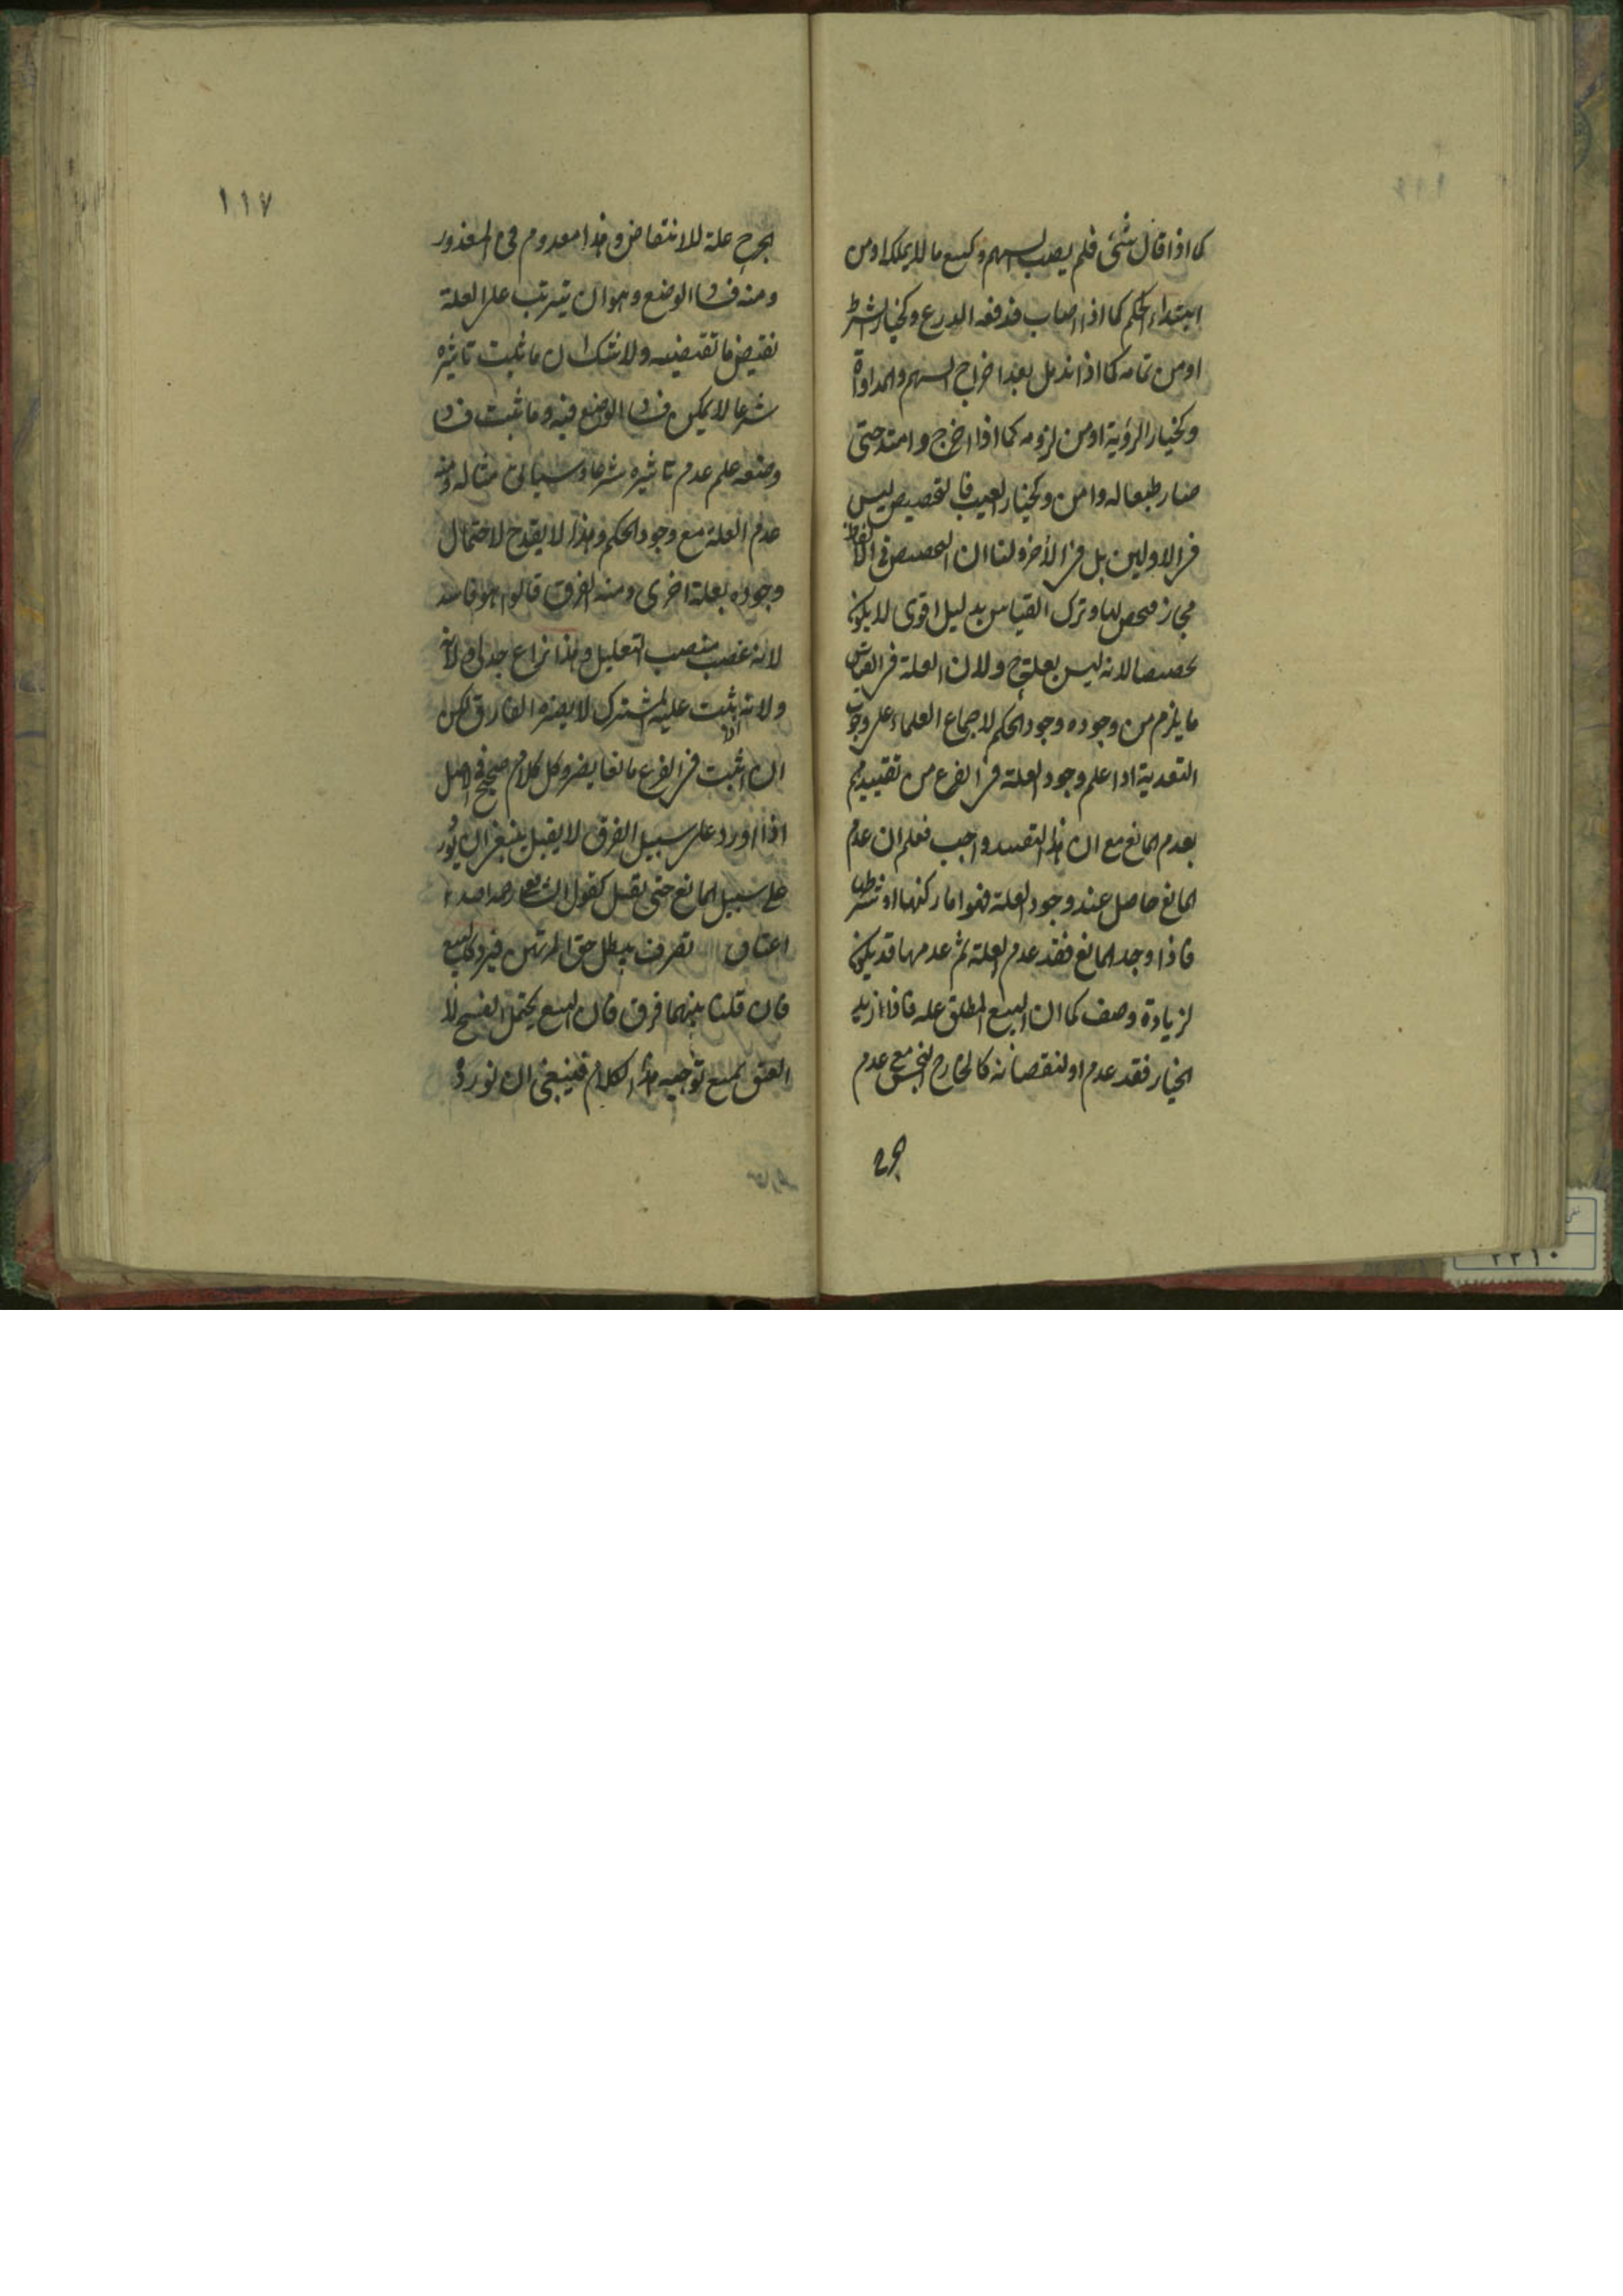 كما اذا قال شئ فلم يصب السهم وكبيع ما لا يملكه او من
ابتداء الحكم كما اذا اصاب فدفعه الدرع وكخيار الشرط
او من تمامه كما اذا اندمل بعد اخراج السهم والمداواة
وكخيار الرؤية او من لزومه كما اذا اخرج وامتد حتى
صار طبعا له وامن وكخيار العيب فالتخصيص ليس
فى الاولين بل فى الاخر ولنا ان التخصيص فى الالفاظ
مجاز فخص بها وترك القياس بدليل اقوى لا يكون
تخصيصا لانه ليس بعلة ح ولان العلة فى القياس
ما يلزم من وجوده وجود الحكم لاجماع العلماء على وجوب
التعدية اذا علم وجود العلة فى الفرع من تقييدهم
بعدم المانع مع ان هذا التقييد واجب فعلم ان عدم
المانع حاصل عند وجود العلة فهو اما ركنها او شرطها
فاذا وجد المانع فقد عدم العلة ثم عدمها قد يكون
لزيادة وصف كما ان البيع المطلق علة فاذا زيد
الخيار فقد عدم او لنقصانه كالخارج النجس مع عدم
الحرج علة للانتقاض وهذا معدوم فى المعذور
ومنه فساد الوضع وهو ان يترتب على العلة
نقيض ما تقتضيه ولا شك ان ما ثبت تاثيره
شرعا لا يمكن فساد الوضع فيه وما ثبت فساد
وضعه علم عدم تاثيره شرعا وسياتى مثاله ومنه
عدم العلة مع وجود الحكم وهذا لا يقدح لاحتمال
وجوده بعلة اخرى ومنه الفرق قالوا هو فاسد
لانه غصب منصب التعليل وهذا نزاع جدلى ولانه
ولانه اذا ثبت علية المشترك لا يضره الفارق لكن
ان اثبت فى الفرع مانعا يضر وكل كلام صحيح فى الاصل
اذا اورد على سبيل الفرق لا يقبل ينبغى ان يورد
على سبيل المانع حتى يقبل كقول الشافعى رحمه الله
اعتاق تصرف يبطل حق المرتهن فيرد كالبيع
فان قلنا بينهما فرق فان البيع يحتمل الفسخ لا
العتق يمنع توجيه هذا الكلام فينبغى ان نورده
١١٧
٢٢١٠